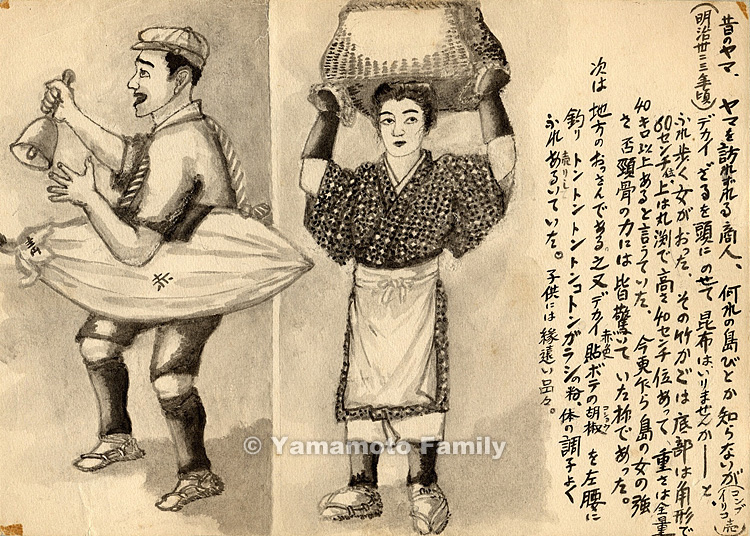 昔のヤマ、ヤマを訪れる商人、何れの島びとか知らないが(コンブ イリコ売)
(明治卅三年頃)デカイざるを頭にのせて昆布はいりませんか――と、
ふれ歩く女がおった、その竹かごは底部は角形で
60センチ位上は丸渕で高さ40センチ位あって、重さは全量
40キロ以上あると言うていた、今更乍ら島の女の強
さ 否頸骨の力には皆驚いていた柿であった。
次は地方のおっさんである之又デカイ赤色貼ボテの胡椒(コショウ)を左腰に
釣り トントントントンコトンガラシの粉、体の調子よく
売りしてふれあるいていた。子供には縁遠い品々。
青
赤
© Yamamoto Family